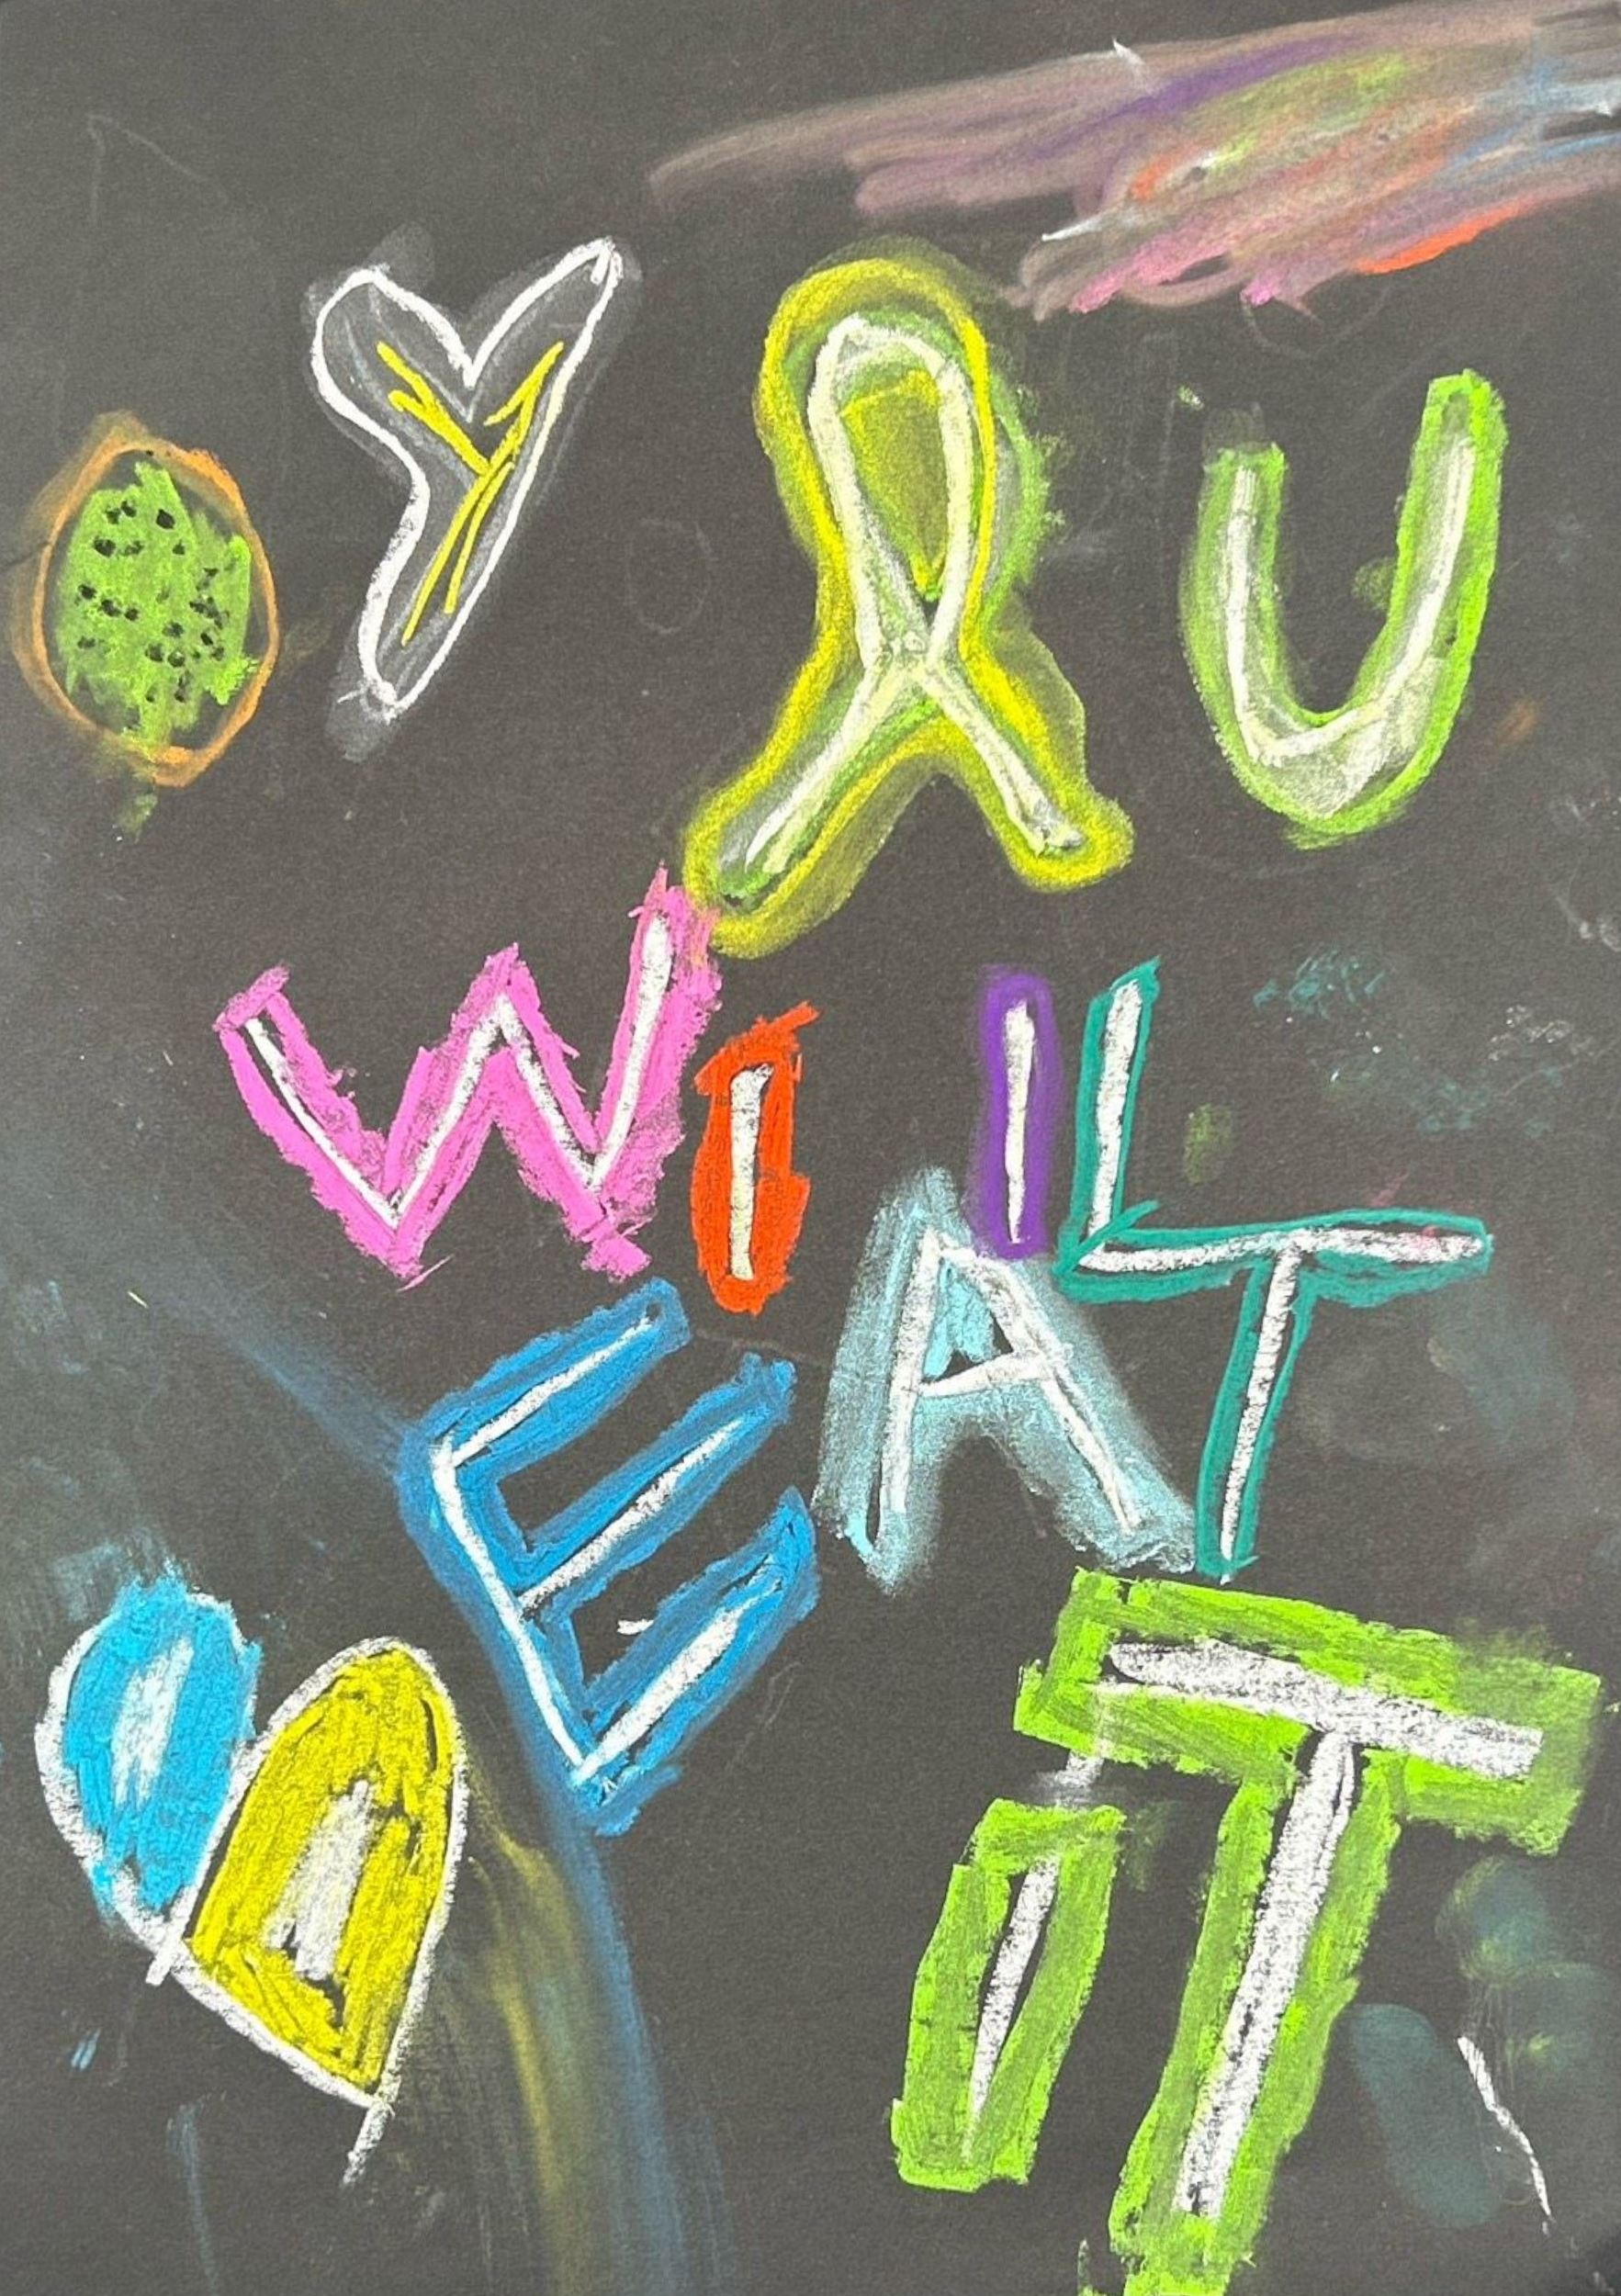 YOU
WIlL
EAT
IT